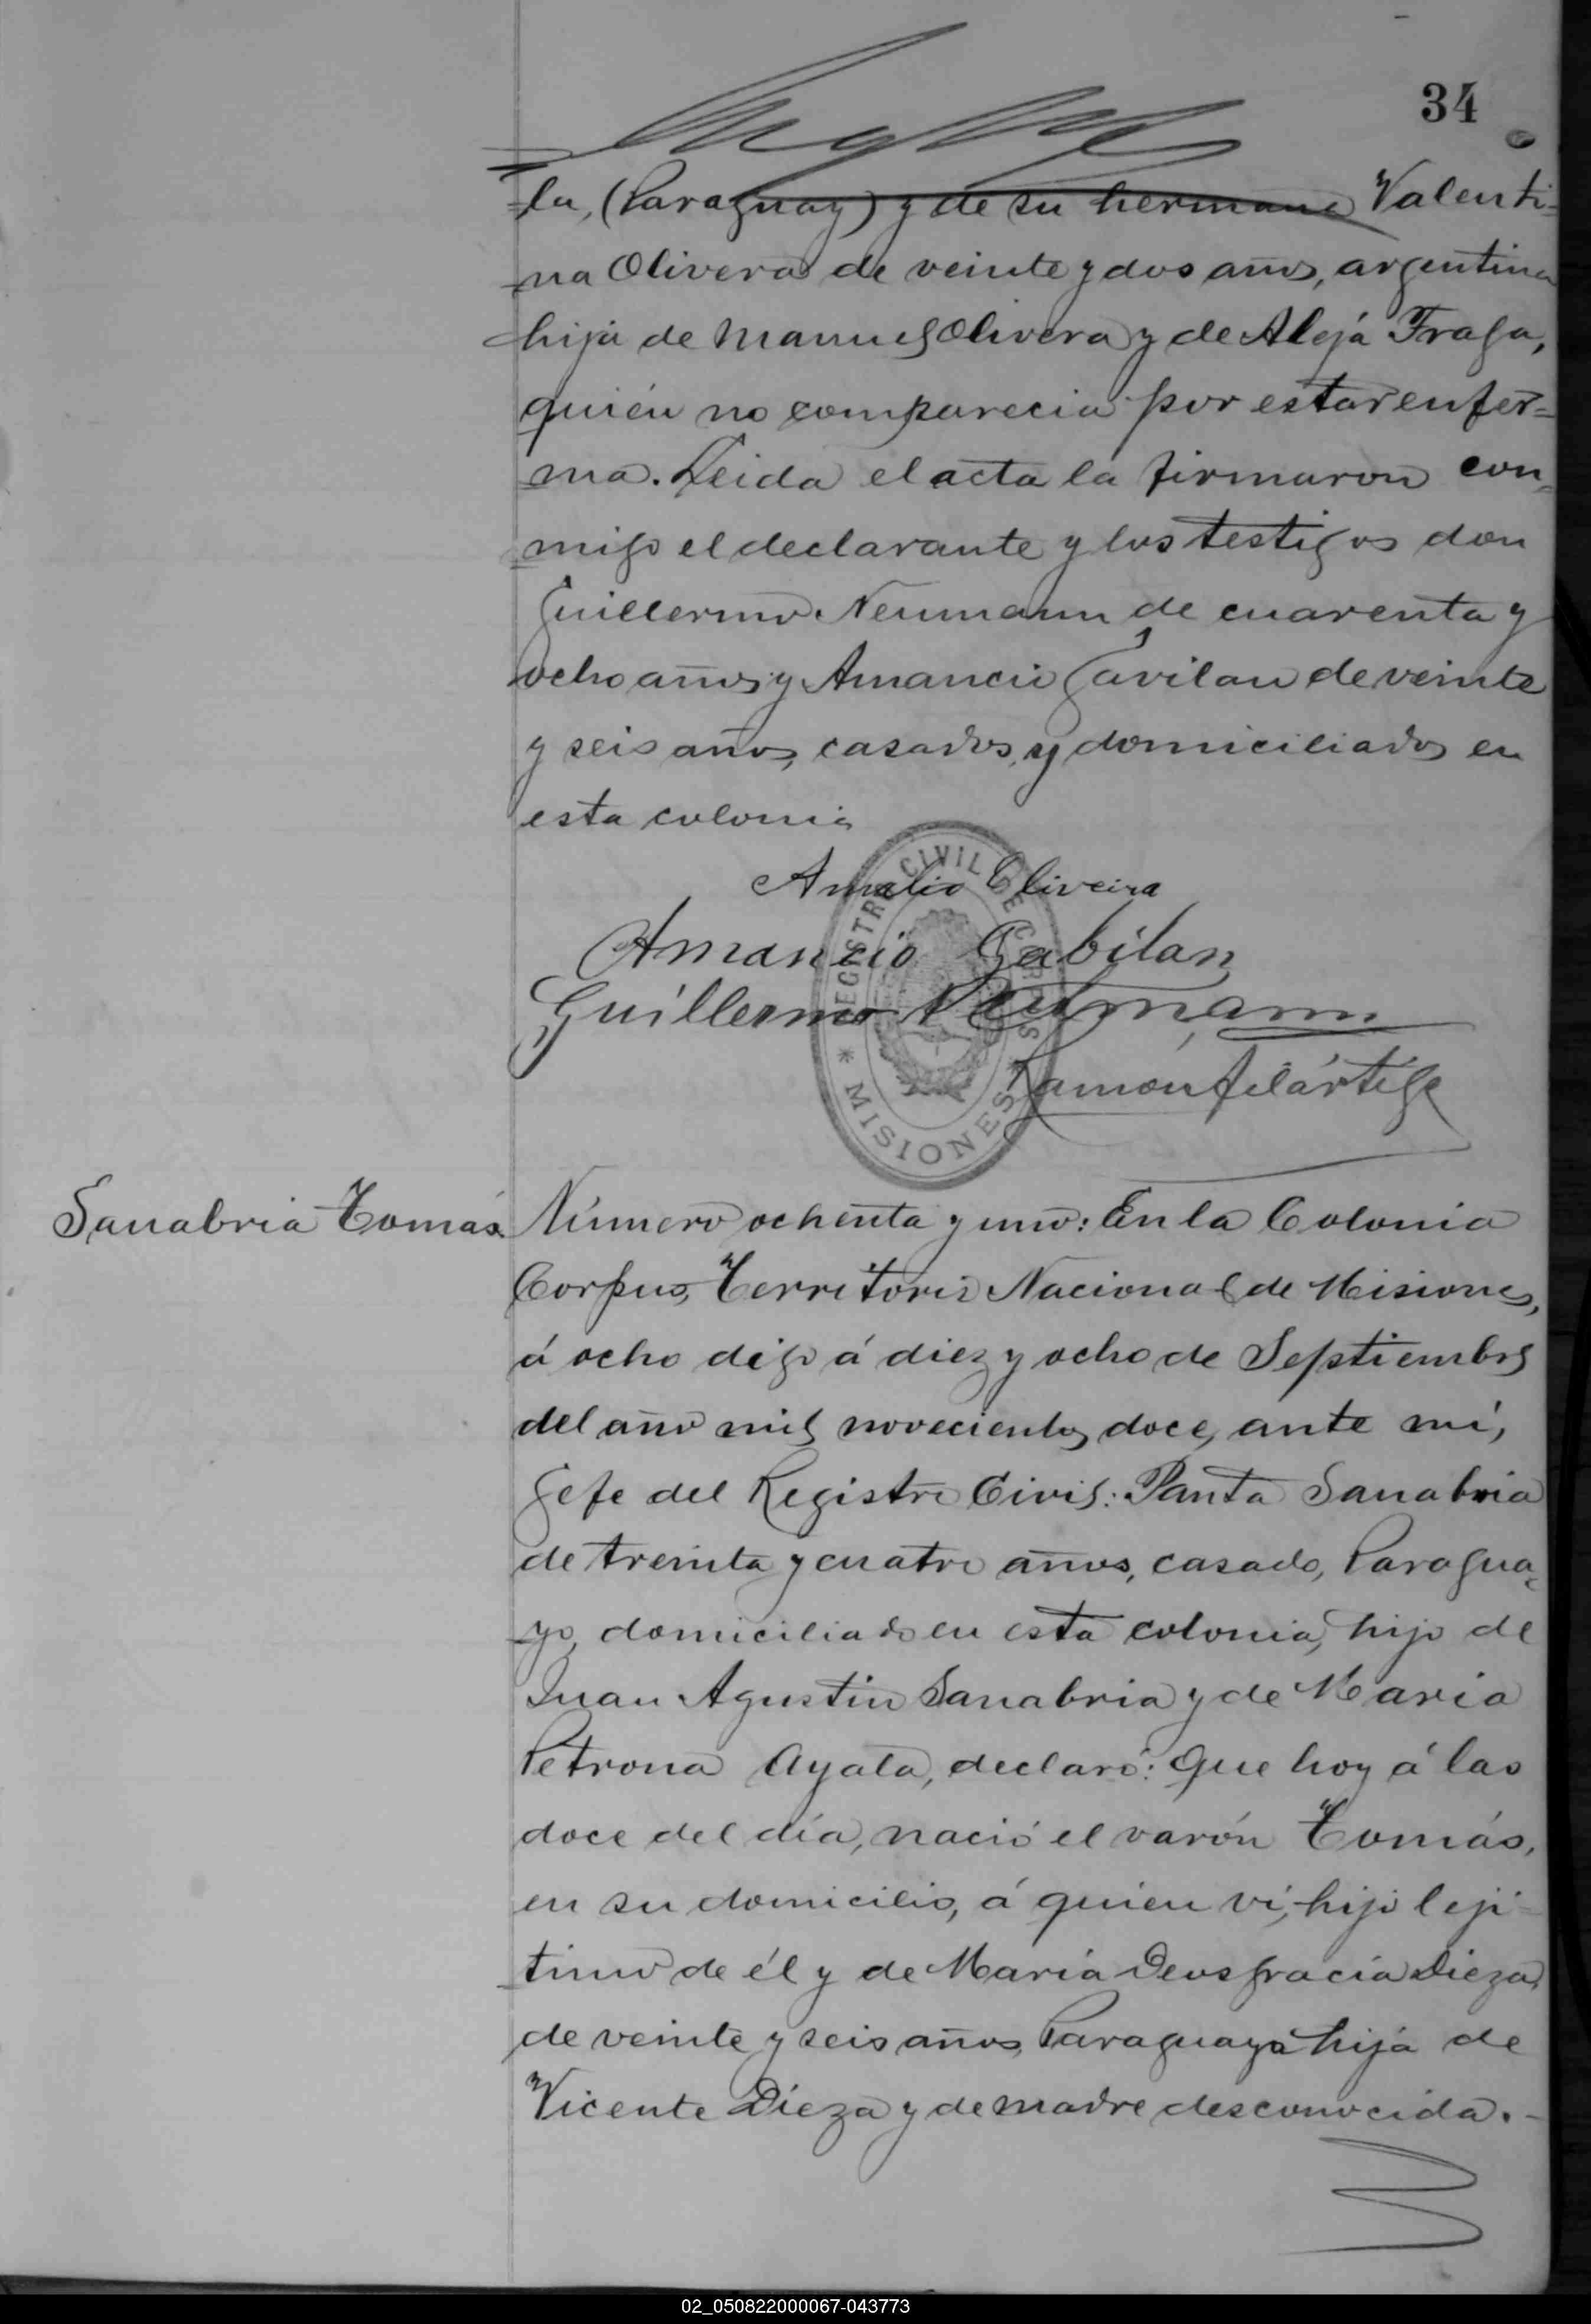 34
la, (Paraguay) y de su hermana Valenti=
na Olivera de veinte y dos años, argentina
hija de Manuel Olivera y de Aleja Fraga,
quién no comparecia por estar enfer=
ma. Leida el acta la firmaron con=
migo el declarante y los testigos don
Guillermo Neumann de cuarenta y
ocho años y Amancio Gavilan de veinte
y seis años, casados, y domiciliados en
esta colonia
Amalio Oliveira
Amancio Gabilan
Guillermo Neumann
Ramón Filártiga
REGISTRO CIVIL DE CORPUS
* MISIONES *
Sanabria Tomás
Número ochenta y uno: En la Colonia
Corpus, Territorio Nacional de Misiones,
á ocho digo á diez y ocho de Septiembre
del año mil novecientos doce, ante mí,
Gefe del Registro Civil: Panta Sanabria
de treinta y cuatro años, casado, Paragua=
yo, domiciliado en esta colonia, hijo de
Juan Agustin Sanabria y de Maria
Petrona Ayala, declaró: Que hoy á las
doce del día, nació el varón Tomás,
en su domicilio, á quien ví, hijo leji=
timo de él y de María Deosgracia Dieza,
de veinte y seis años, Paraguaya hija de
Vicente Dieza y de madre desconocida.-
02_050822000067-043773